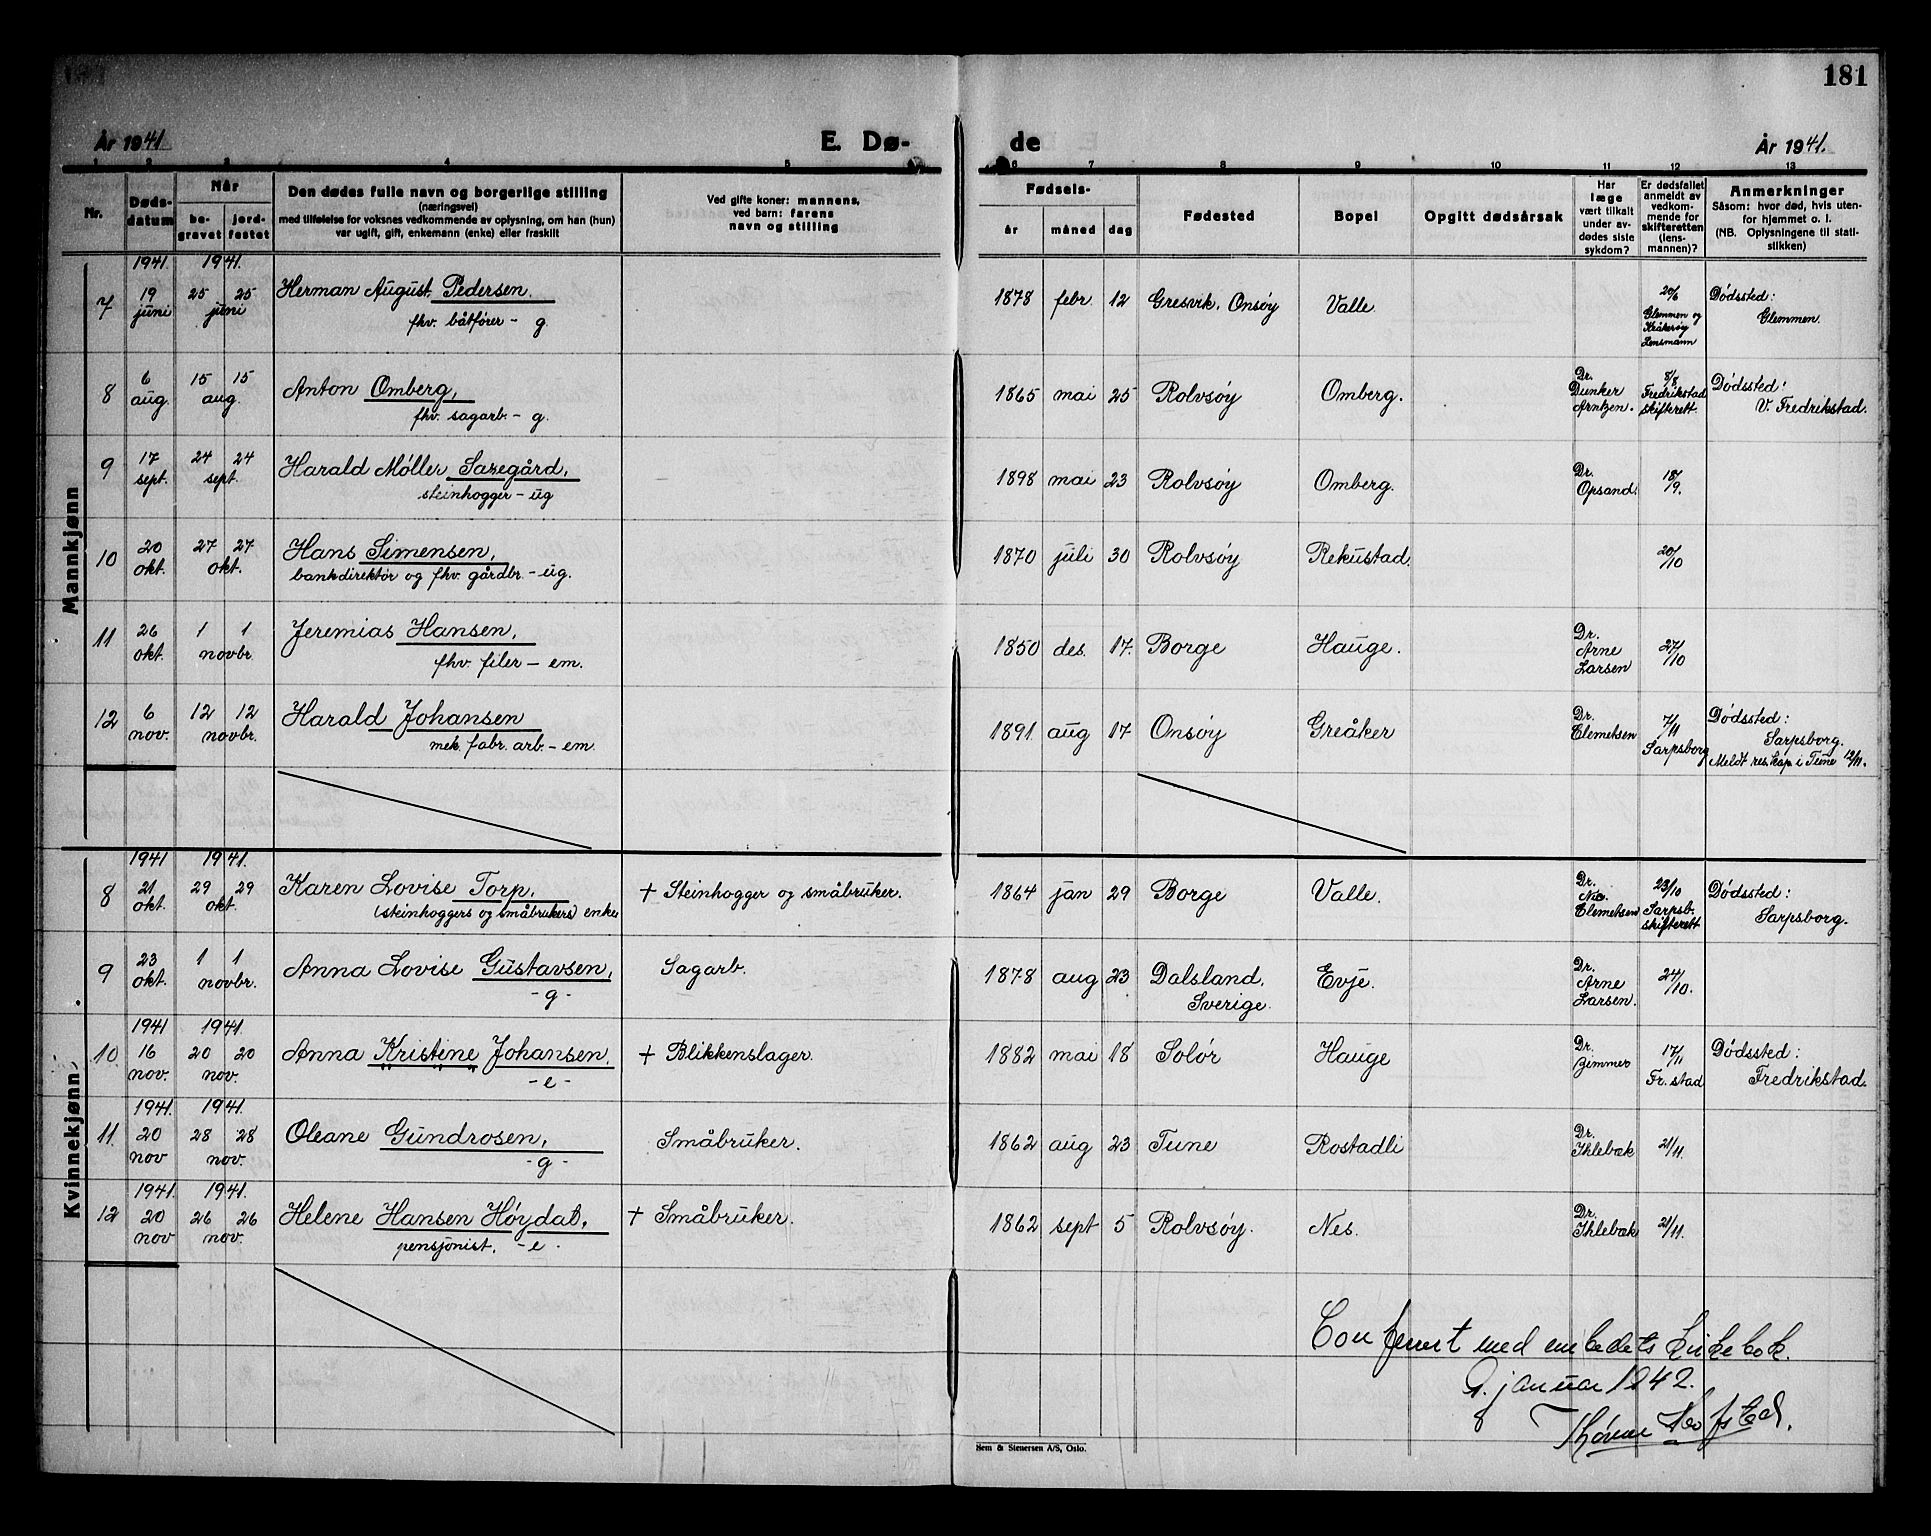 181
År 1941.
E. Dø-
de
År 1941.
1 2 3 4 5 6 7 8 9 10 11 12 13
Nr.
Døds-
datum
Når
be-
gravet
jord-
festet
Den dødes fulle navn og borgerlige stilling
(næringsvei)
med tilføielse for voksnes vedkommende av oplysning, om han (hun)
var ugift, gift, enkemann (enke) eller fraskilt
Ved gifte koner: mannens,
ved barn: farens
navn og stilling
Fødsels-
år måned dag
Fødested
Bopel
Opgitt dødsårsak
Har
læge
vært tilkalt
under av-
dødes siste
sykdom?
Er dødsfallet
anmeldt av
vedkom-
mende for
skifteretten
(lens-
mannen)?
Anmerkninger
Såsom: hvor død, hvis uten-
for hjemmet o. l.
(NB. Oplysningene til stati-
stikken)
Mannkjønn
1941. 1941.
7 19 juni 25 25 juni Herman August Pedersen.
fhv. båtfører - g.
1878 febr. 12 Gresvik, Onsøy Valle. 20/6 Glemmen og Kråkerøy Lensmann Dødssted: Glemmen.
8 6 aug. 15 15 aug. Anton Omberg,
fhv. sagarb. - g.
1865 mai 25 Rolvsøy Omberg. Dr. Dunker Arntzen. 8/8 Fredrikstad skifterett. Dødssted: V. Fredrikstad.
9 17 sept. 24 24 sept. Harald Møller
steinhogger - ug
1898 mai 23 Rolvsøy Omberg. Dr. Opsand. 18/9.
10 20 okt. 27 27 okt. Hans Simensen,
bankdirektør og fhv. gårdbr. - ug.
1870 juli 30 Rolvsøy Rekustad. 20/10
11 26 okt. 1 1 novbr. Jeremias Hansen,
fhv. filer - em.
1850 des. 17. Borge Hauge. Dr. Arne Larsen 27/10
12 6 nov. 12 12 novbr. Harald Johansen
mek. fabr. arb. - em.
1891 aug 17 Onsøy Greåker Dr. Clemetsen 7/11 Sarpsborg Dødssted: Sarpsborg.
Meldt res. kap i Tune 12/11.
Kvinnekjønn
1941 1941.
8 21 okt. 29 29 okt. Karen Lovise Torp,
(steinhoggers og småbrukers) enke
† Steinhogger og småbruker. 1864 jan 29 Borge Valle. Dr. Clemetsen 23/10 Sarpsb. skifterett Dødssted: Sarpsborg.
9 23 okt. 1 1 novbr. Anna Lovise Gustavsen,
-g-
Sagarb. 1878 aug 23 Dalsland, Sverige. Evje. Dr. Arne Larsen. 24/10.
1941 1941.
10 16 nov. 20 20 nov. Anna Kristine Johansen,
-e-
† Blikkenslager. 1882 mai 18 Solør Hauge Dr. Zimmer 17/11 Fr.stad Dødssted: Fredrikstad.
1941. 1941.
11. 20 nov 28 28 nov. Oleane Gundrosen,
-g-
Småbruker. 1862 aug 23 Tune Rostadli Dr. Ihlebæk 21/11.
1941. 1941.
12 20 nov 26 26 nov. Helene Hansen Høydal,
pensjonist. -e-
† Småbruker. 1862 sept 5 Rolvsøy. Nes. Dr. Ihlebæk 21/11.
Conferert med embedets kirkebok.
9. januar 1942.
Hem & Stenersen A/S, Oslo.